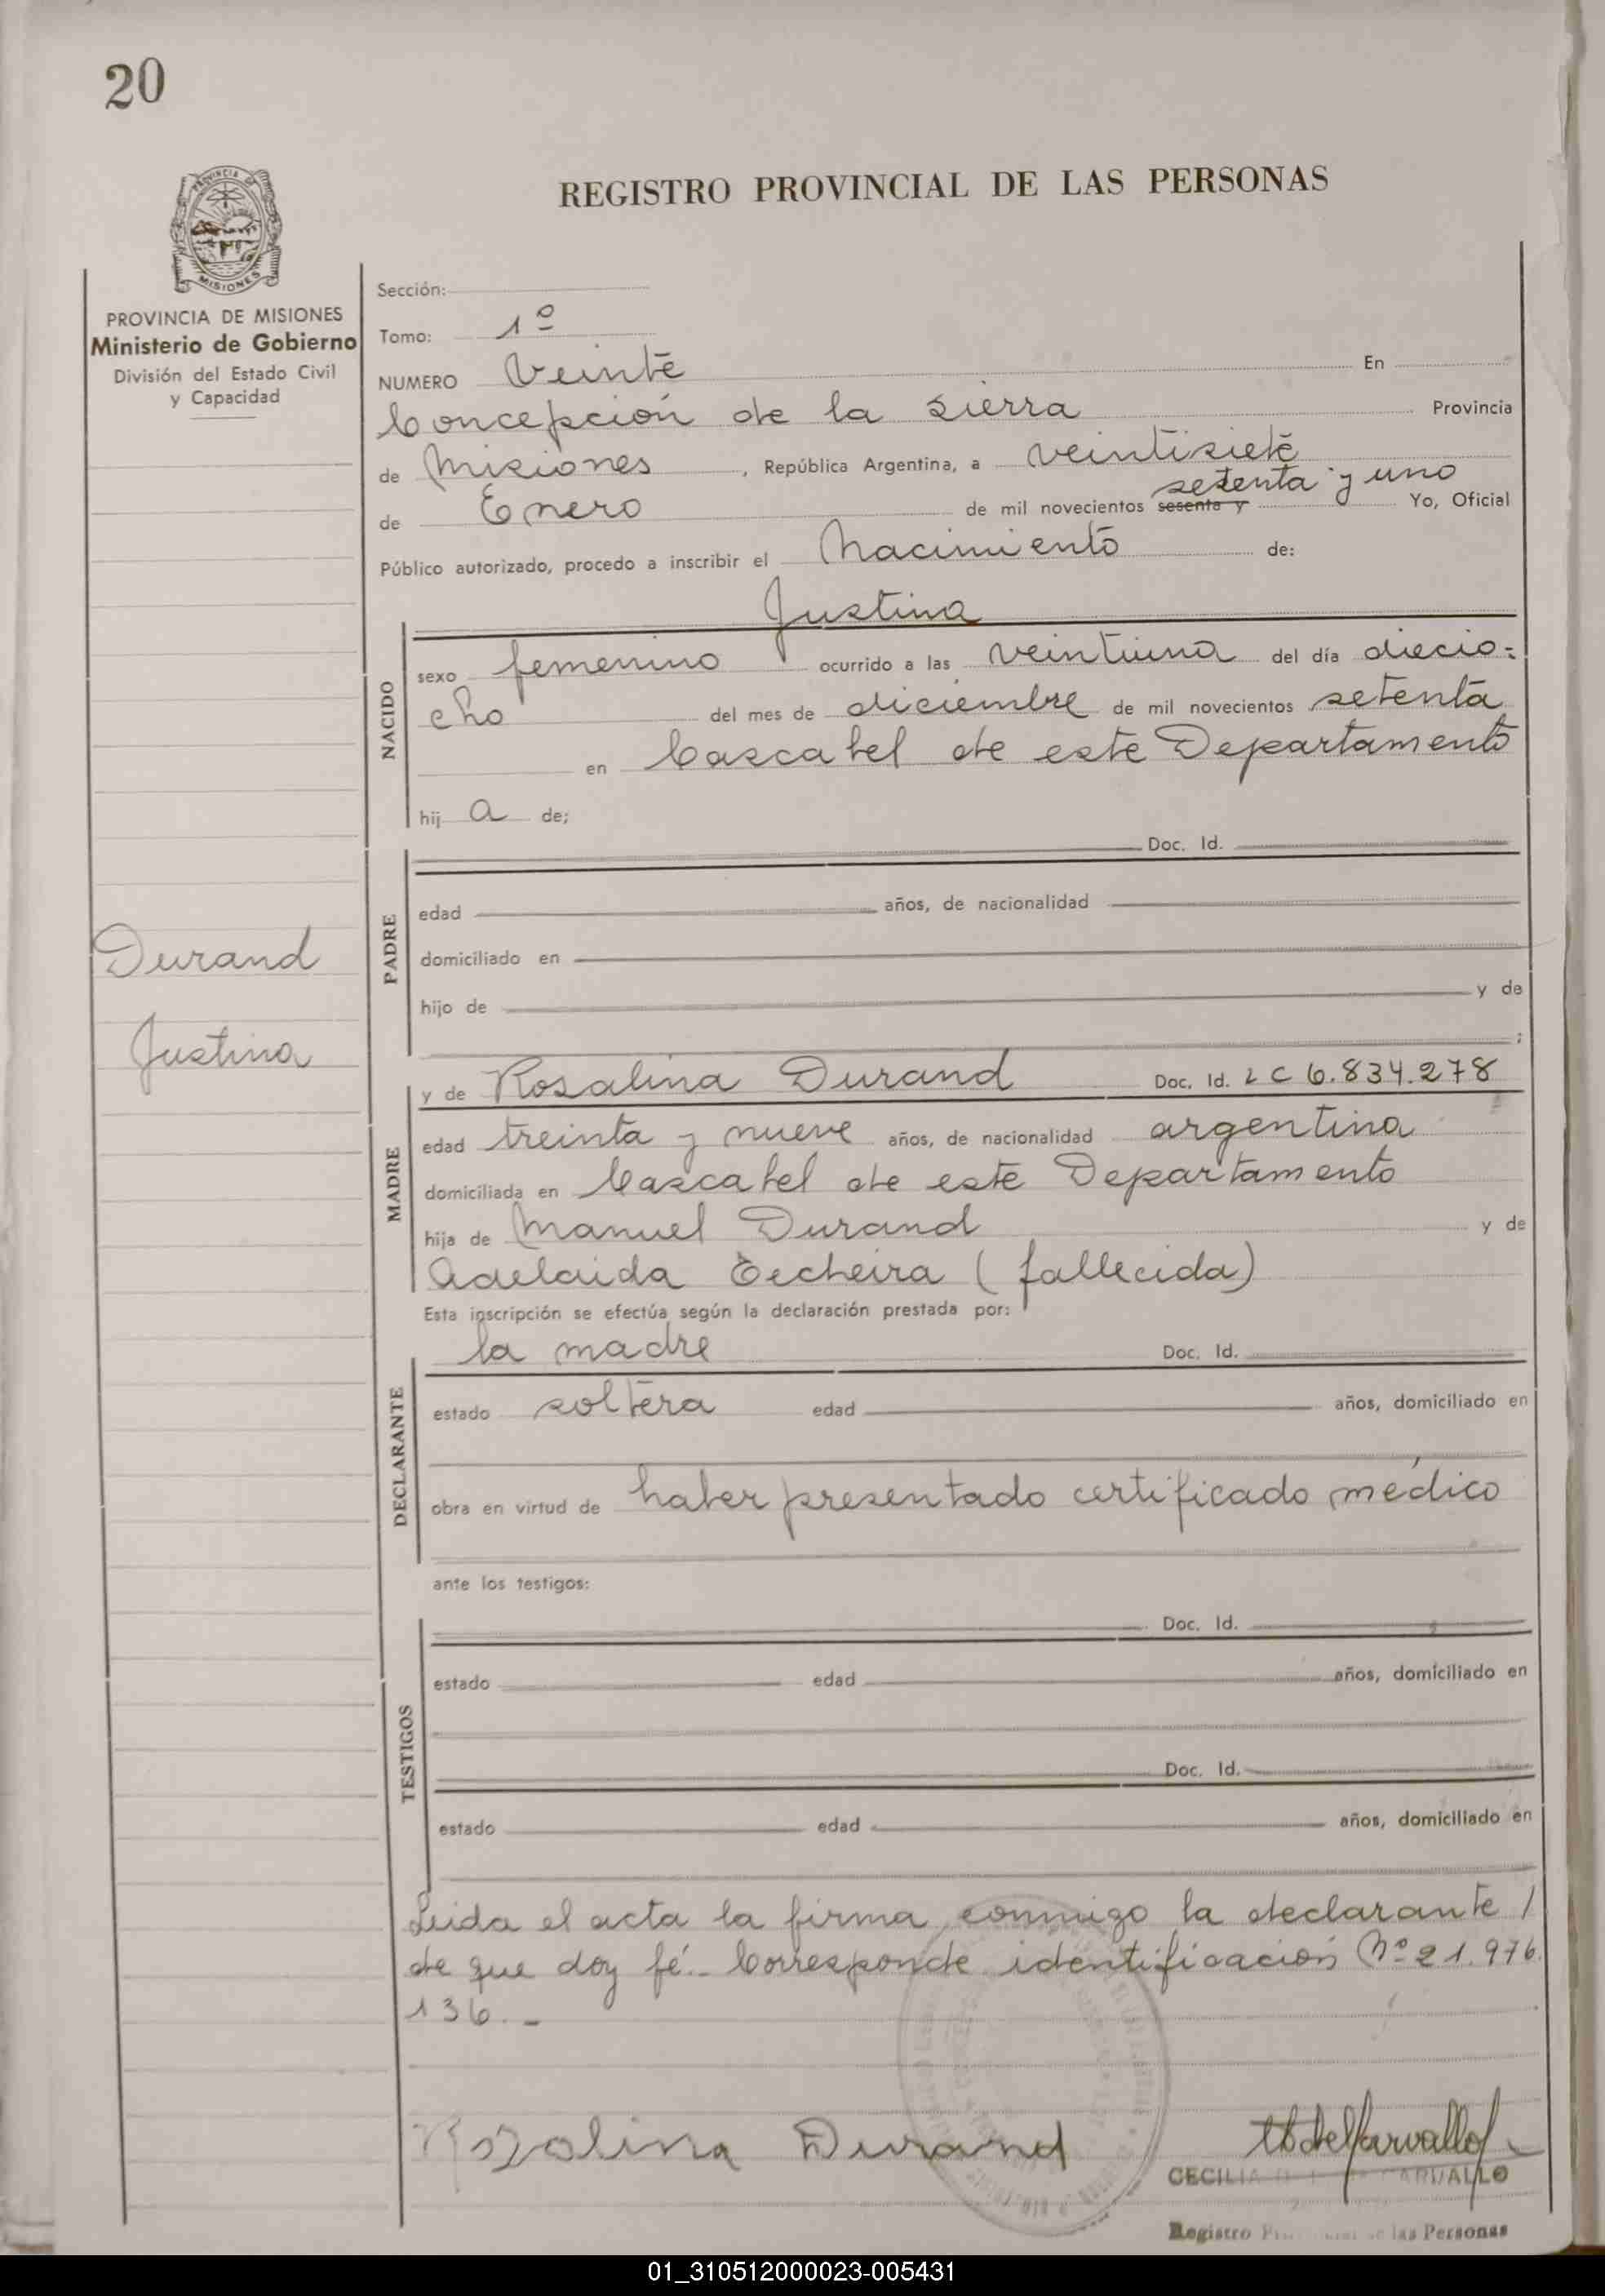 20
PROVINCIA DE
MISIONES
REGISTRO PROVINCIAL DE LAS PERSONAS
PROVINCIA DE MISIONES
Ministerio de Gobierno
División del Estado Civil
y Capacidad
Durand
Justina
Sección:
Tomo: 1º
NUMERO Veinte En
Concepción de la Sierra Provincia
de Misiones, República Argentina, a veintisiete
de Enero de mil novecientos sesenta y setenta y uno Yo, Oficial
Público autorizado, procedo a inscribir el Nacimiento de:
Justina
NACIDO
sexo femenino ocurrido a las veintiuna del día diecio=
cho del mes de diciembre de mil novecientos setenta
en Cascabel de este Departamento
hij a de;
PADRE
Doc. Id.
edad años, de nacionalidad
domiciliado en
hijo de y de
;
MADRE
y de Rosalina Durand Doc. Id. LC 6.834.278
edad treinta y nueve años, de nacionalidad argentina
domiciliada en Cascabel de este Departamento
hija de Manuel Durand y de
Adelaida (fallecida)
Esta inscripción se efectúa según la declaración prestada por:
DECLARANTE
la madre Doc. Id.
estado soltera edad años, domiciliado en
obra en virtud de haber presentado certificado médico
ante los testigos:
TESTIGOS
Doc. Id.
estado edad años, domiciliado en
Doc. Id.
estado edad años, domiciliado en
Leida el acta la firma conmigo la declarante /
de que doy fé.- Corresponde identificación Nº 21.976.
136.-
Rozalina Durand
CECILIA CARVALLO
Registro de las Personas
01_310512000023-005431